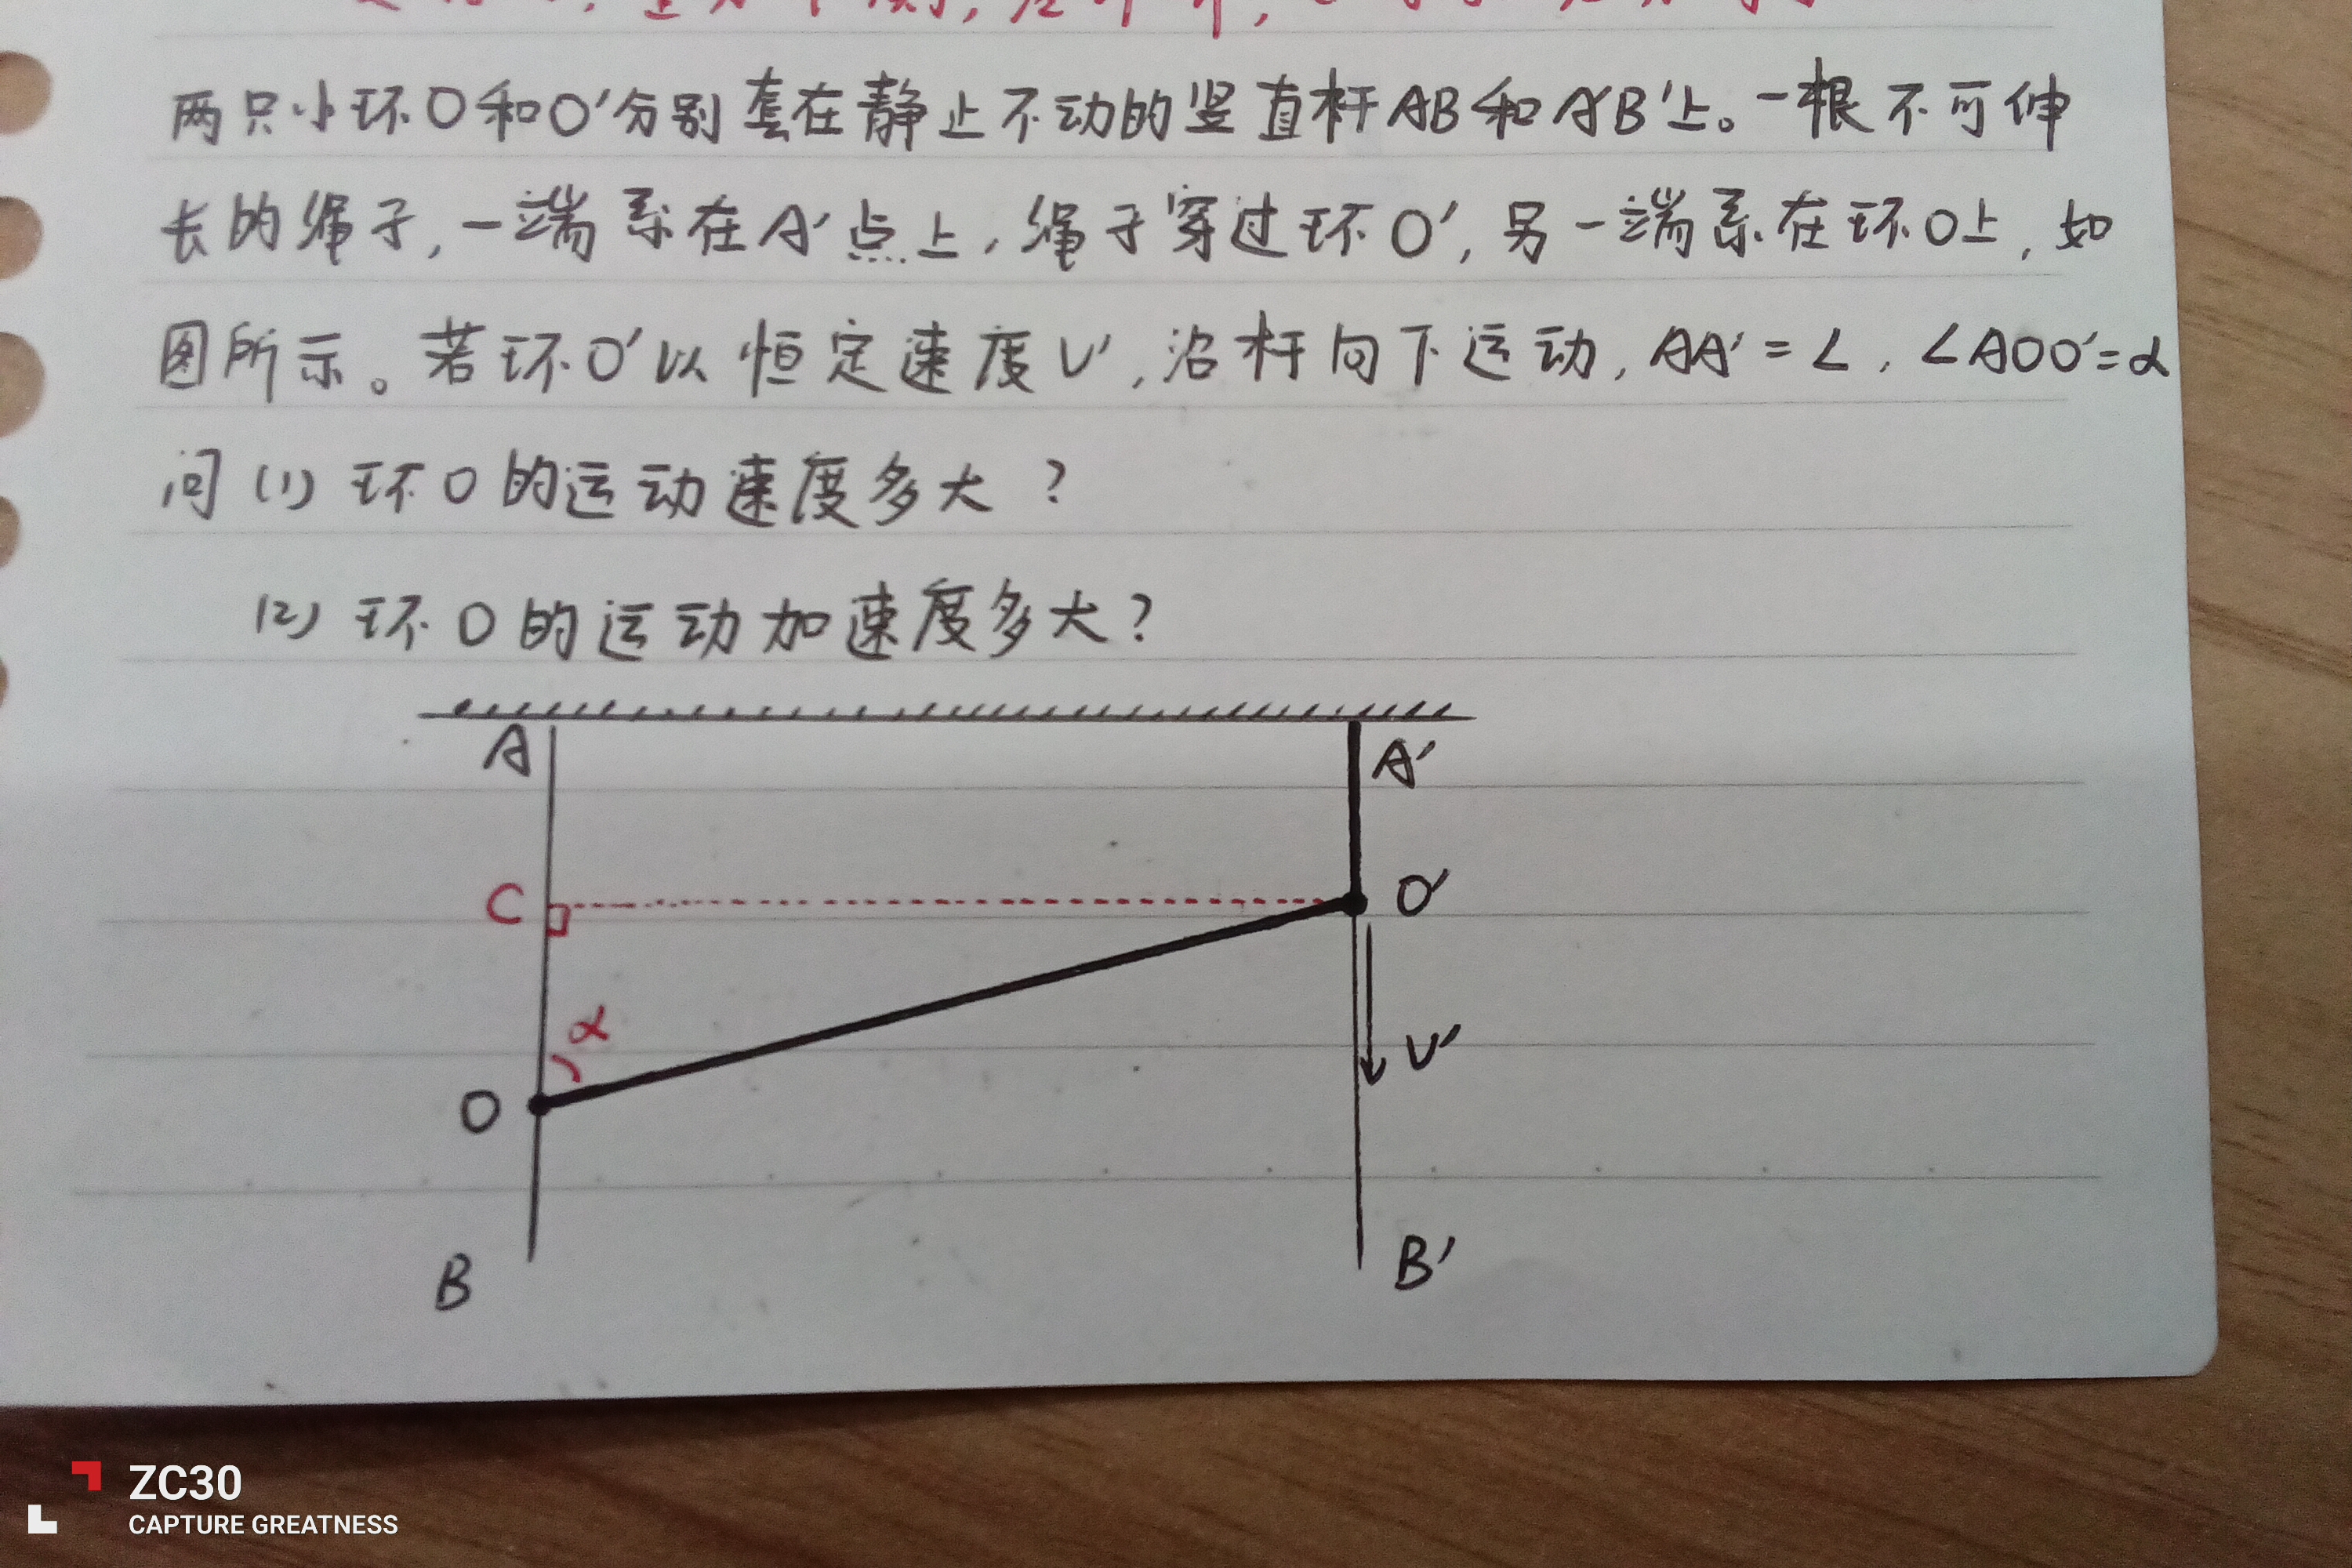 两只小环O和O'分别套在静止不动的竖直杆AB和A'B'上。一根不可伸
长的绳子,一端系在A'点上,绳子穿过环O',另一端系在环O上,如
图所示。若环O'以恒定速度υ',沿杆向下运动,AA'=L,∠AOO'=α
问(1)环O的运动速度多大?
(2)环O的运动加速度多大?
A
A'
C
O'
α
υ'
O
B
B'
ZC30
CAPTURE GREATNESS